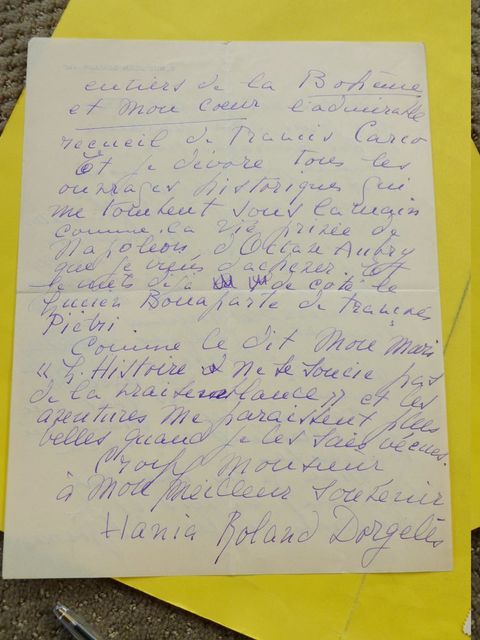 entiers de la Bohême
et mon cœur l'admirable
recueil de Francis Carco
Et je dévore tous les
ouvrages historiques qui
me tombent sous la main
comme la vie privée de
Napoléon, d'Octave Aubry
que je viens d'achever. Et
je mets déjà de côté le
Lucien Bonaparte de François
Piétri.
Comme le dit mon mari
« L'Histoire ne se soucie pas
de la vraisemblance » et les
aventures me paraissent plus
belles quand je les sais vécues.
Croyez Monsieur
à mon meilleur souvenir
Hania Roland Dorgelès